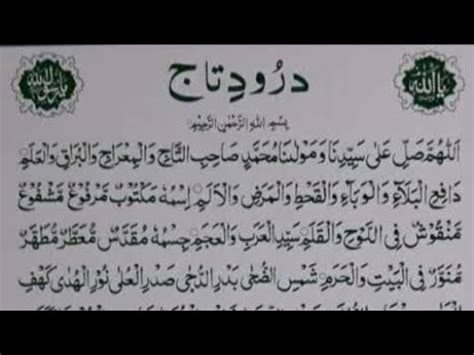 درُودِ تاج
یا اللہ
یا رسول اللہ
بِسْمِ اللهِ الرَّحْمٰنِ الرَّحِيْمِ
اَللّٰهُمَّ صَلِّ عَلٰى سَيِّدِنَا وَمَوْلٰنَا مُحَمَّدٍ صَاحِبِ التَّاجِ وَالْمِعْرَاجِ وَالْبُرَاقِ وَالْعَلَمِ
دَافِعِ الْبَلَآءِ وَالْوَبَآءِ وَالْقَحْطِ وَالْمَرَضِ وَالْاَلَمِ اِسْمُهٗ مَكْتُوْبٌ مَّرْفُوْعٌ مَّشْفُوْعٌ
مَّنْقُوْشٌ فِى اللَّوْحِ وَالْقَلَمِ سَيِّدِ الْعَرَبِ وَالْعَجَمِ جِسْمُهٗ مُقَدَّسٌ مُّعَطَّرٌ مُّطَهَّرٌ
مُّنَوَّرٌ فِى الْبَيْتِ وَالْحَرَمِ شَمْسِ الضُّحٰى بَدْرِ الدُّجٰى صَدْرِ الْعُلٰى نُوْرِ الْهُدٰى كَهْفِ